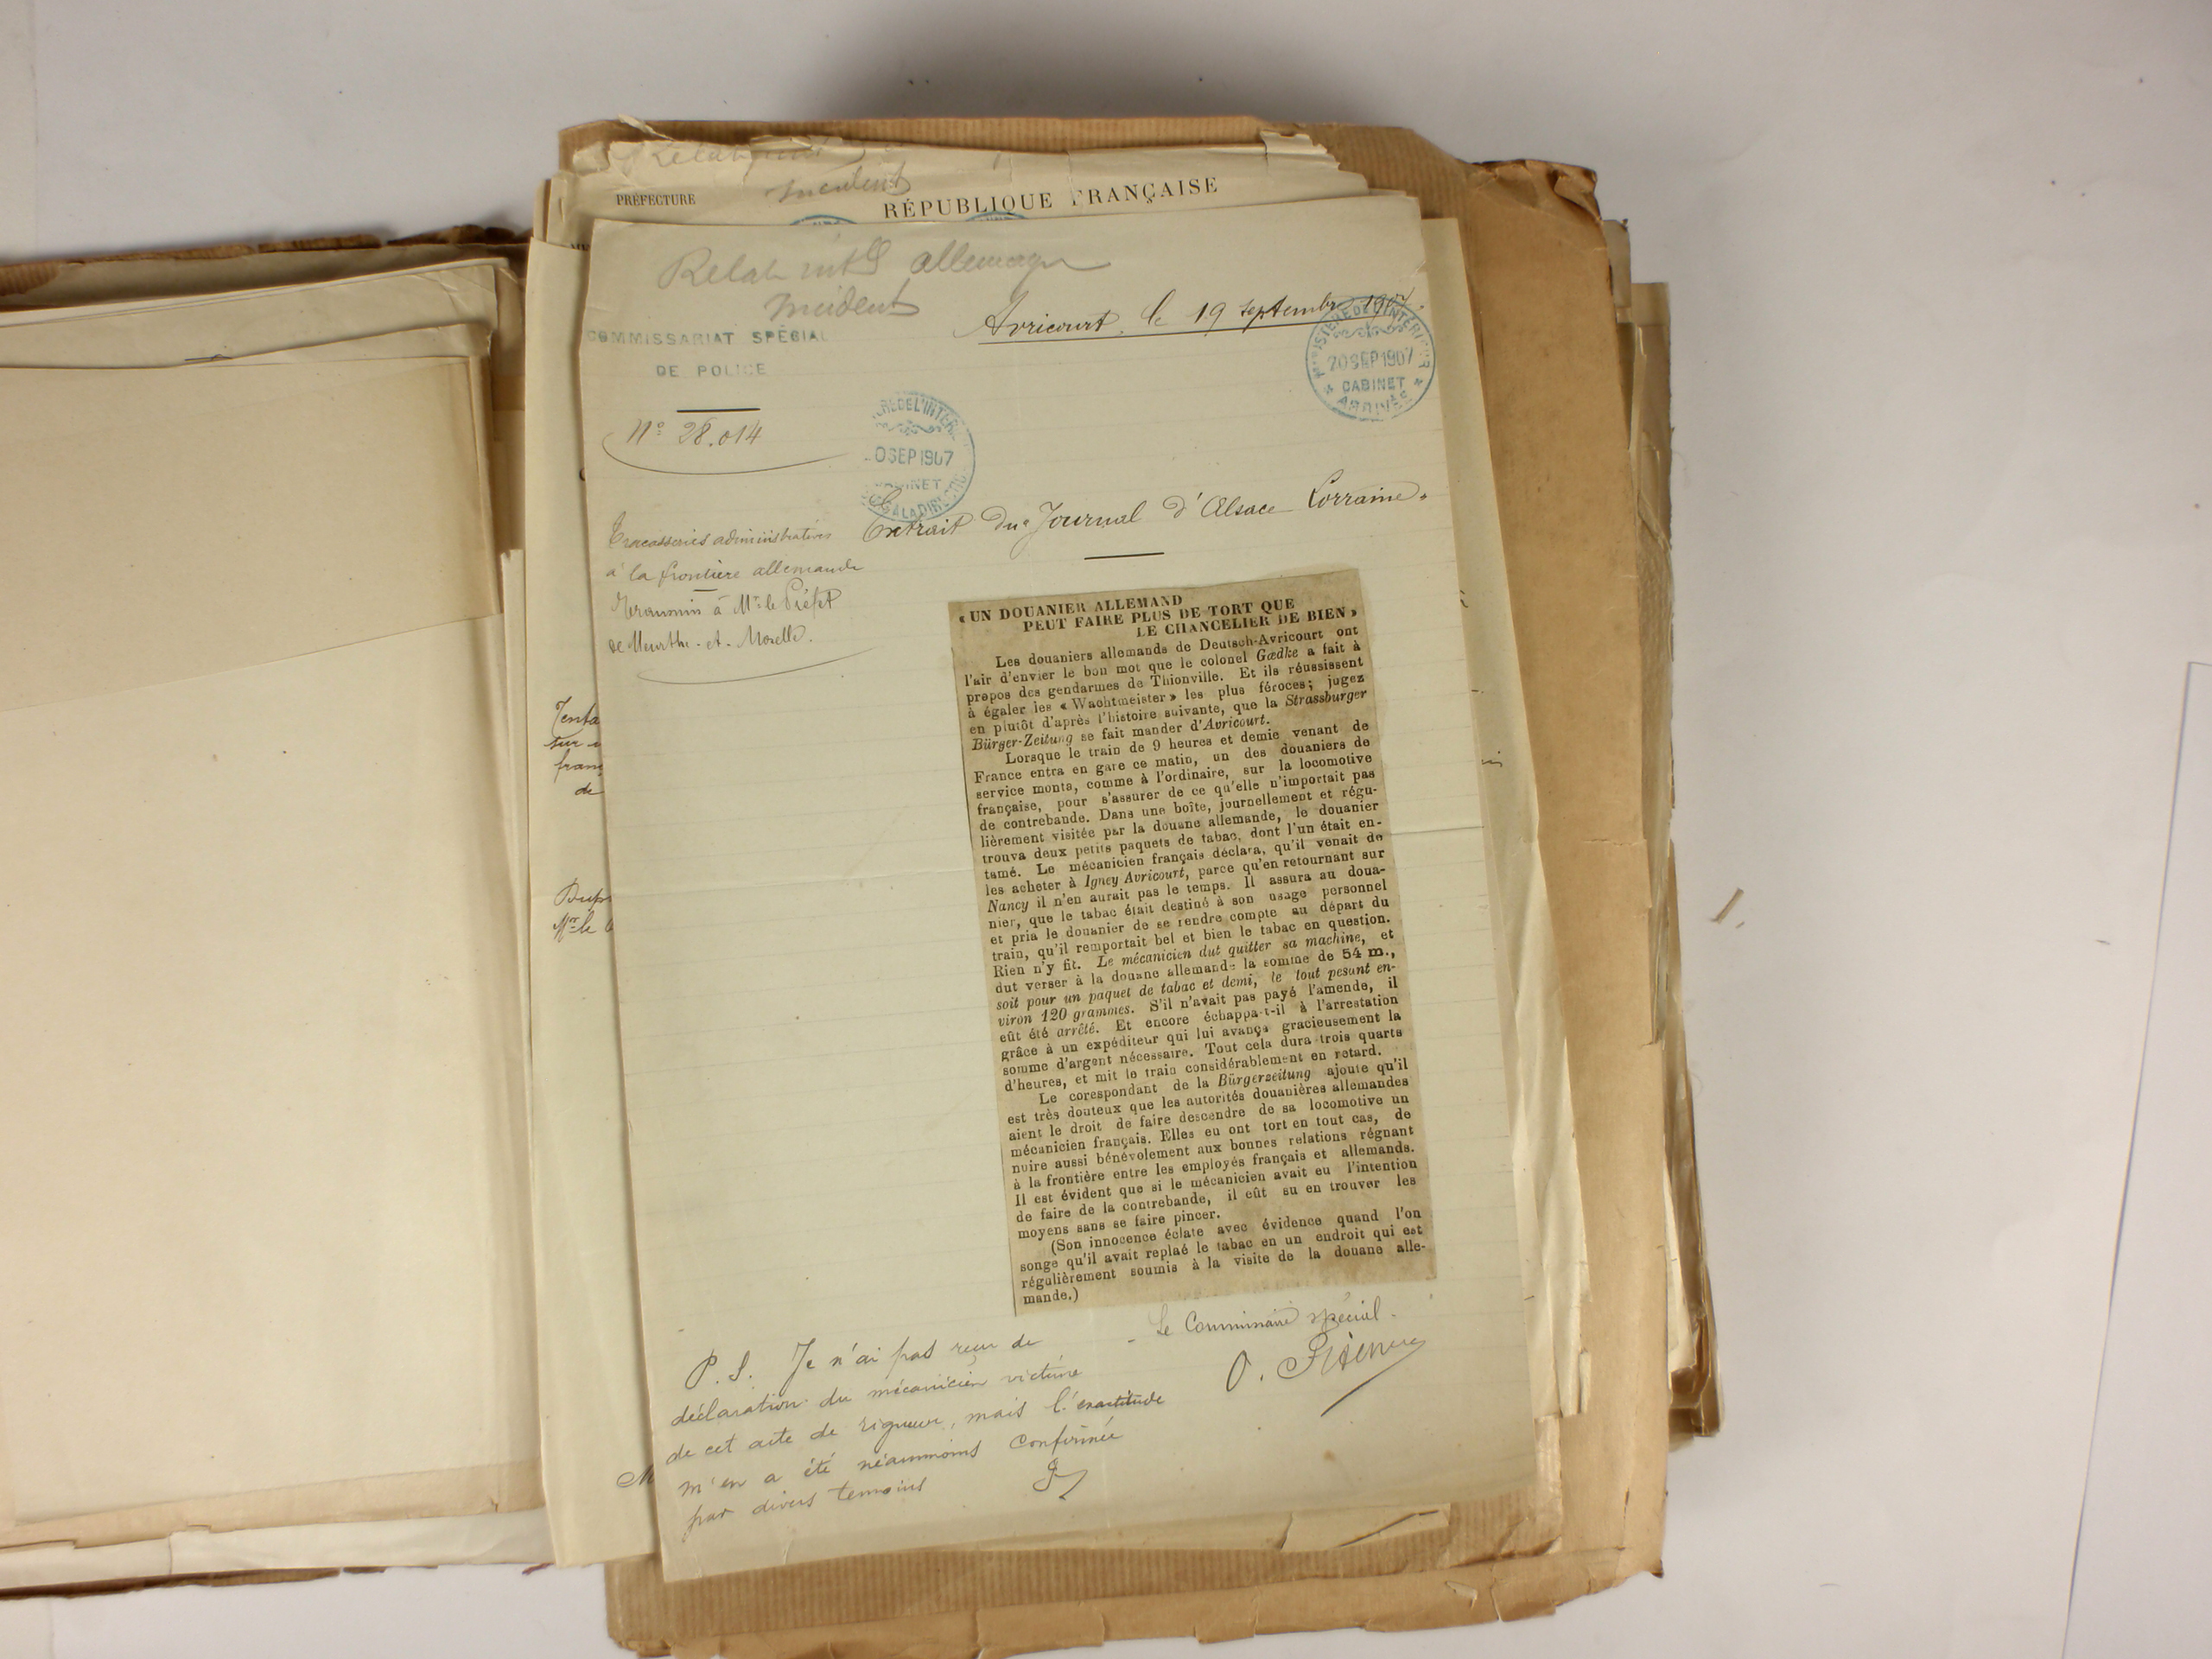 PRÉFECTURE
incident
RÉPUBLIQUE FRANÇAISE
Relat int allemagn
incident
Avricourt, le 19 septembre 1907.
COMMISSARIAT SPÉCIAL
DE POLICE
MINISTÈRE DE L'INTÉRIEUR
20 SEP 1907
CABINET
ARRIVÉE
N° 28.014
0 SEP 1907
Extrait du "Journal d'Alsace-Lorraine"
Tracasseries administratives
à la frontière allemande
Transmis à Mr. le Préfet
de Meurthe-et-Moselle.
« UN DOUANIER ALLEMAND
PEUT FAIRE PLUS DE TORT QUE
LE CHANCELIER DE BIEN »
Les douaniers allemands de Deutsch-Avricourt ont
l'air d'envier le bon mot que le colonel Gædke a fait à
propos des gendarmes de Thionville. Et ils réussissent
à égaler les « Wachtmeister » les plus féroces; jugez
en plutôt d'après l'histoire suivante, que la Strassburger
Bürger-Zeitung se fait mander d'Avricourt.
Lorsque le train de 9 heures et demie venant de
France entra en gare ce matin, un des douaniers de
service monta, comme à l'ordinaire, sur la locomotive
française, pour s'assurer de ce qu'elle n'importait pas
de contrebande. Dans une boîte, journellement et régu-
lièrement visitée par la douane allemande, le douanier
trouva deux petits paquets de tabac, dont l'un était en-
tamé. Le mécanicien français déclara, qu'il venait de
les acheter à Igney Avricourt, parce qu'en retournant sur
Nancy il n'en aurait pas le temps. Il assura au doua-
nier, que le tabac était destiné à son usage personnel
et pria le douanier de se rendre compte au départ du
train, qu'il remportait bel et bien le tabac en question.
Rien n'y fit. Le mécanicien dut quitter sa machine, et
dut verser à la douane allemande la somme de 54 m.,
soit pour un paquet de tabac et demi, le tout pesant en-
viron 120 grammes. S'il n'avait pas payé l'amende, il
eût été arrêté. Et encore échappa-t-il à l'arrestation
grâce à un expéditeur qui lui avança gracieusement la
somme d'argent nécessaire. Tout cela dura trois quarts
d'heures, et mit le train considérablement en retard.
Le corespondant de la Bürgerzeitung ajoute qu'il
est très douteux que les autorités douanières allemandes
aient le droit de faire descendre de sa locomotive un
mécanicien français. Elles eu ont tort en tout cas, de
nuire aussi bénévolement aux bonnes relations régnant
à la frontière entre les employés français et allemands.
Il est évident que si le mécanicien avait eu l'intention
de faire de la contrebande, il eût su en trouver les
moyens sans se faire pincer.
(Son innocence éclate avec évidence quand l'on
songe qu'il avait replaé le tabac en un endroit qui est
régulièrement soumis à la visite de la douane alle-
mande.)
Le Commissaire spécial.
P. S. Je n'ai pas reçu de
déclaration du mécanicien victime
de cet acte de rigueur, mais l'exactitude
m'en a été néanmoins confirmée
par divers temoins